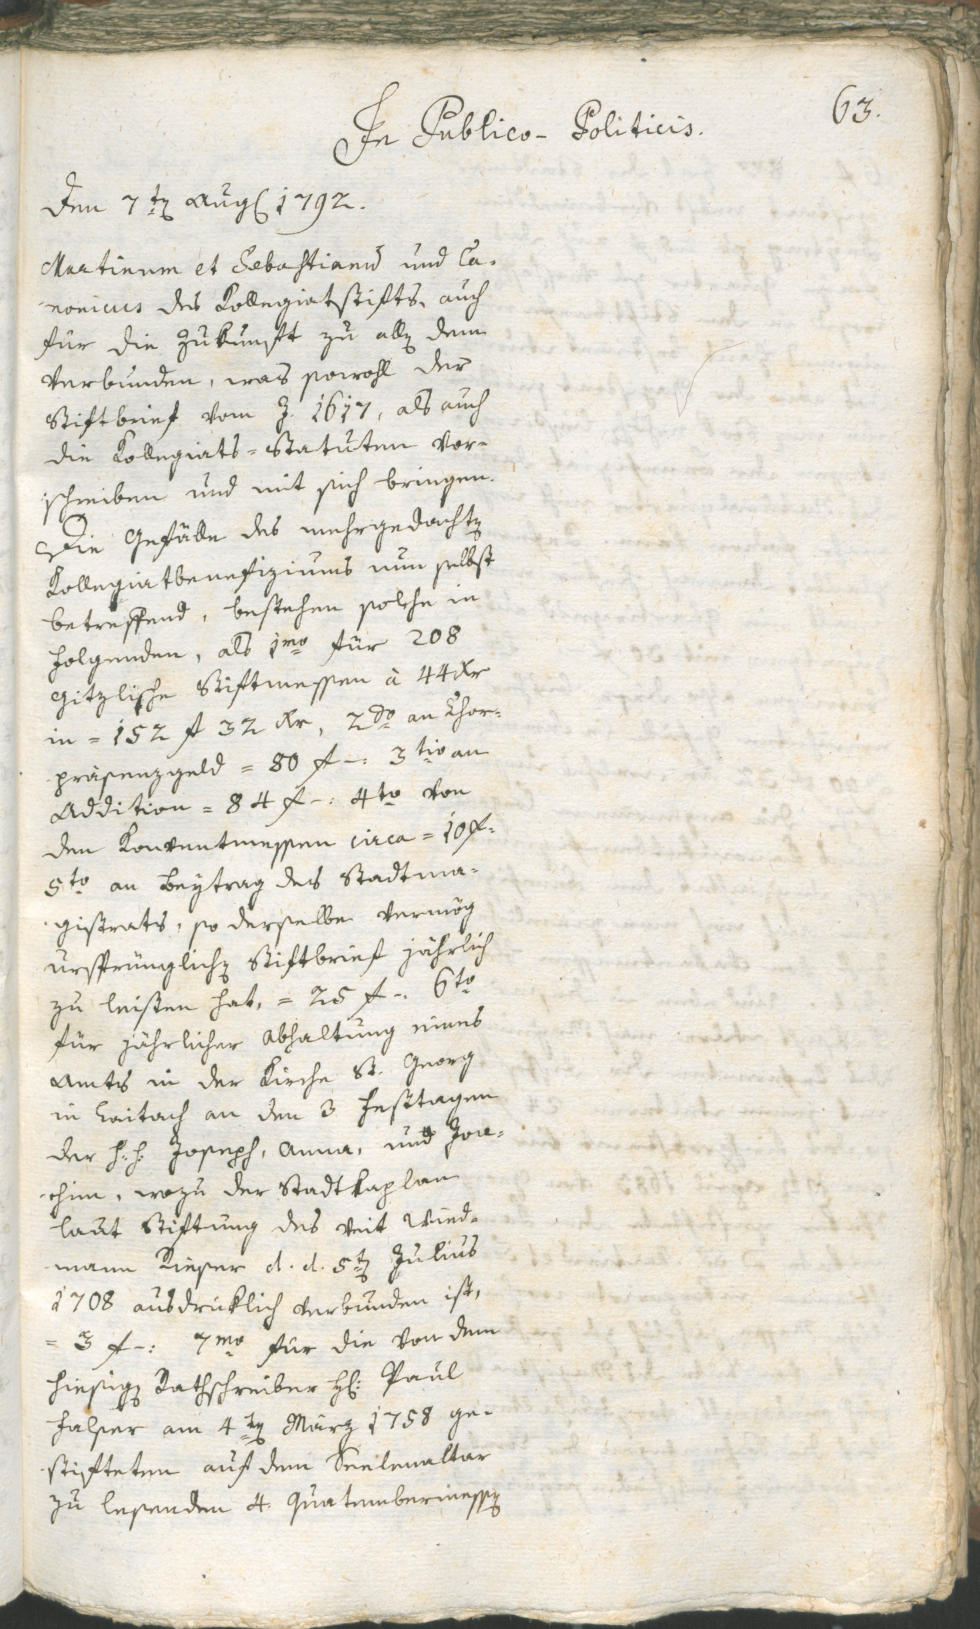 63.
In Publico-Politicis.
Den 7ten Aug 1792.
Martinum et Sebastianum und Ca-
nonicus des Kollegiatstifts, auch
für die Zukunft zu allen dem
verbunden, was sowohl der
Stiftbrief vom J. 1617, als auch
die Kollegiats-Statuten vor-
schreiben und mit sich bringen.
Die Gefälle des mehrgedachten
Kollegiatbenefiziums nun selbst
betreffend, bestehen solche in
folgenden, als 1mo für 208
Gitzlische Stiftmessen à 44 Xr
in = 152 f 32 Xr, 2do an Chor-
präsenzgeld = 80 f -: 3tio an
Addition = 84 f -: 4to von
den Konventmessen circa = 10 f-
5to an Beytrag des Stadtma-
gistrats, so derselbe vermög
ursprünglichen Stiftbrief jährlich
zu leisten hat, = 25 f -. 6to
für jährlicher Abhaltung eines
Amts in der Kirche St. Georg
in Laitach an den 3 Festtagen
der H: H: Joseph, Anna, und Joa-
chim, wozu der Stadtkaplan
laut Stiftung des Veit Wied-
mann Kieser d. d. 5ten Julius
1708 ausdrücklich verbunden ist,
= 3 f -: 7mo für die von dem
hiesigen Rathschreiber H: Paul
Halser am 4ten März 1758 ge-
stifteten auf dem Seelenaltar
zu lesenden 4. Quatembermessen